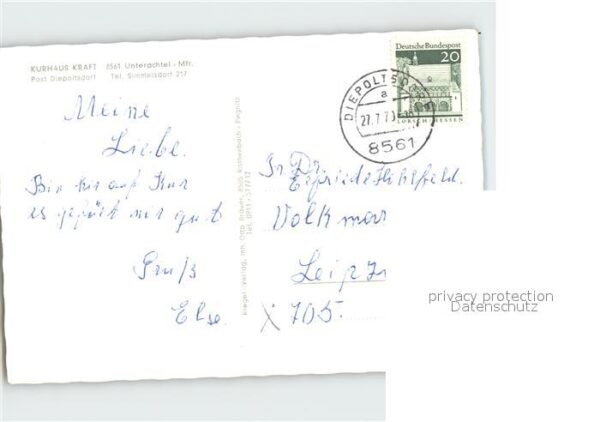 KURHAUS KRAFT 8561 Unterachtel - Mfr.
Post Diepoltsdorf Tel. Simmelsdorf 217
Deutsche Bundespost
20
LORSCH/HESSEN
DIEPOLTSDORF
a
27.7.7
8561
Meine
Liebe.
Bin hier auf Kur
es gefällt mir gut
Gruß
Else.
Fr. Dr.
Elfriede Hohlfeld.
Volkmar
Leipz
X 705.
Riegel-Verlag, Inh.
8505 Röthenbach - Pegnitz
privacy protection
Datenschutz